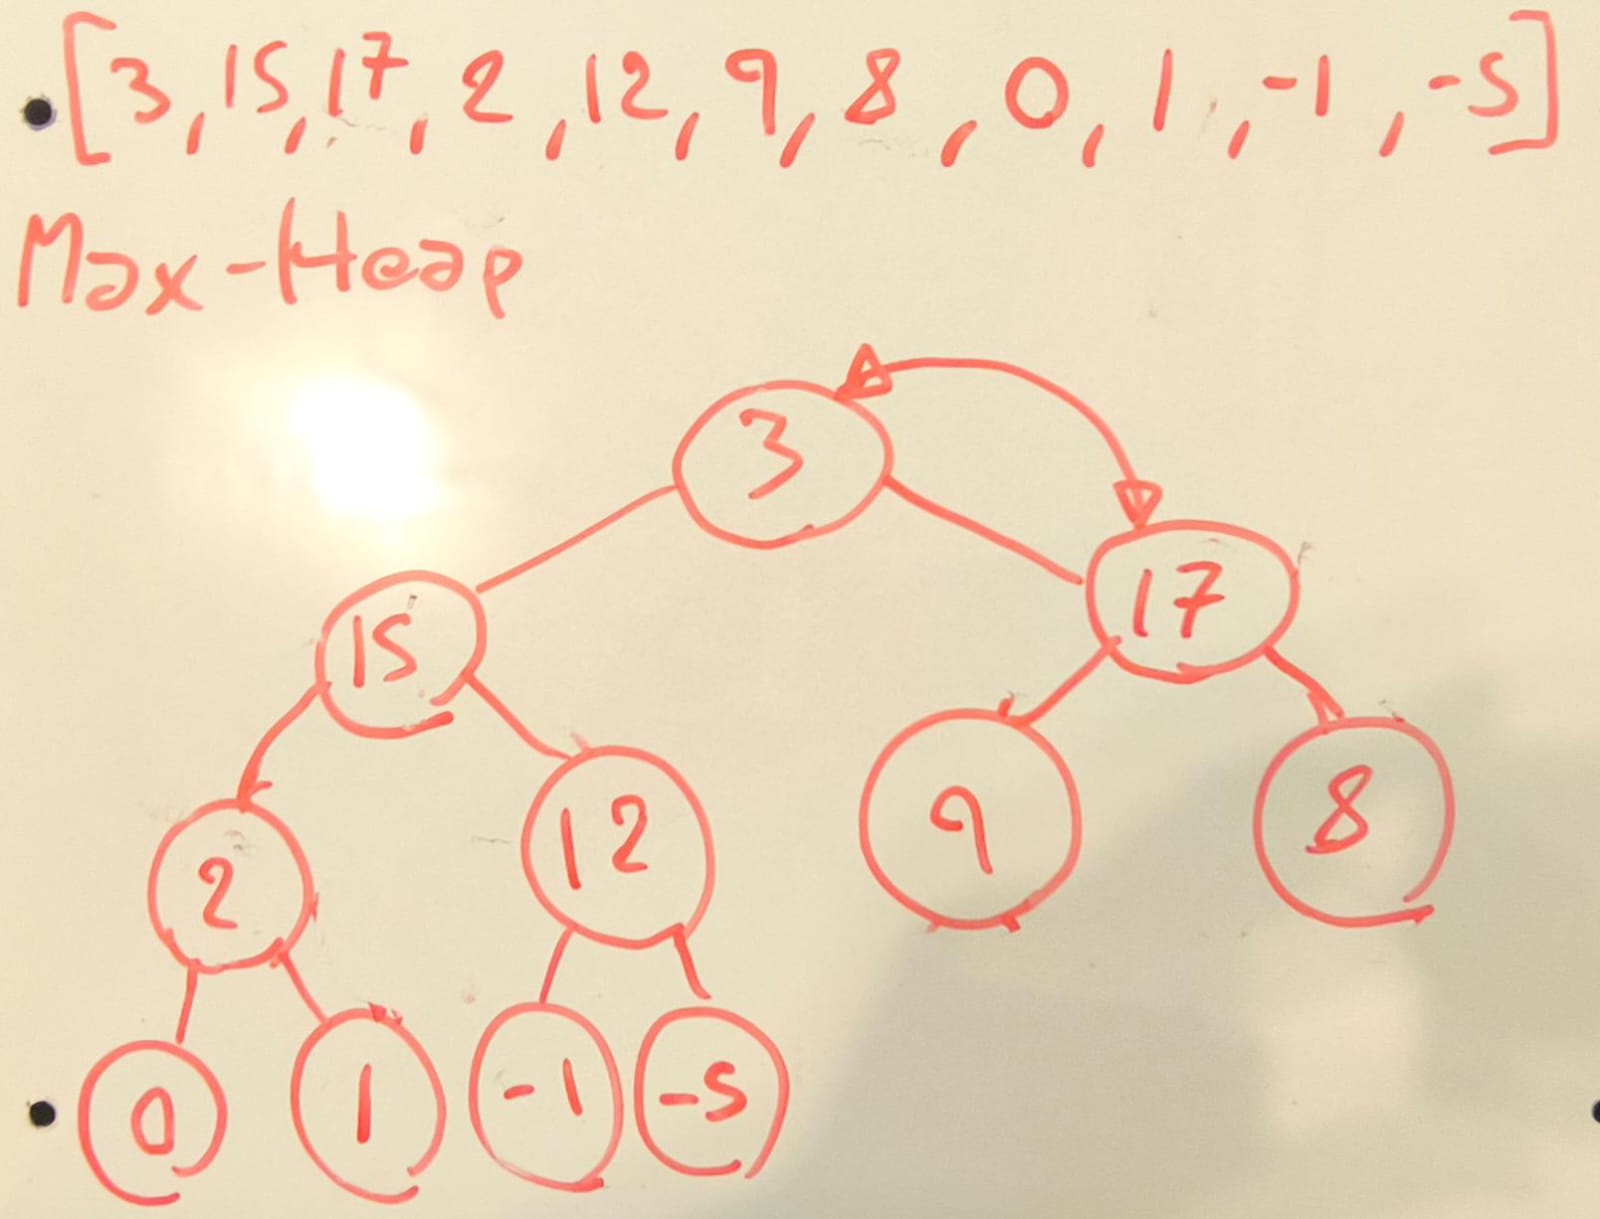 [3, 15, 17, 2, 12, 9, 8, 0, 1, -1, -5]
Max-Heap
3
15 17
2 12 9 8
0 1 -1 -5